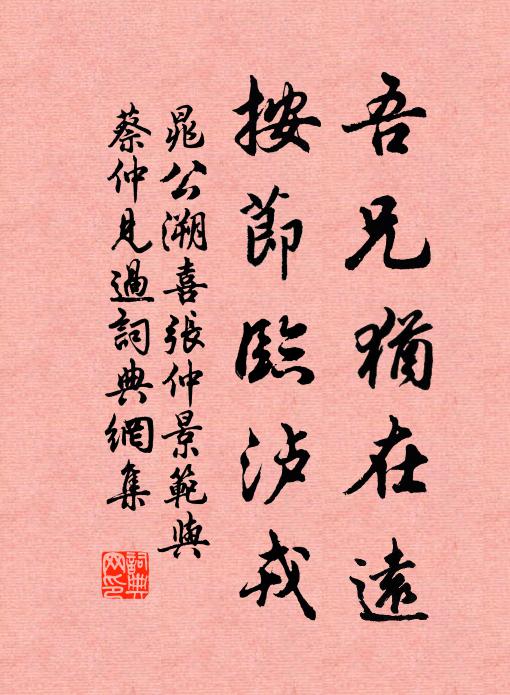 吾兄猶在遠
按節臨沾戎
晁公溯喜張仲景範與
蔡仲見過詞典網集
詞典網印